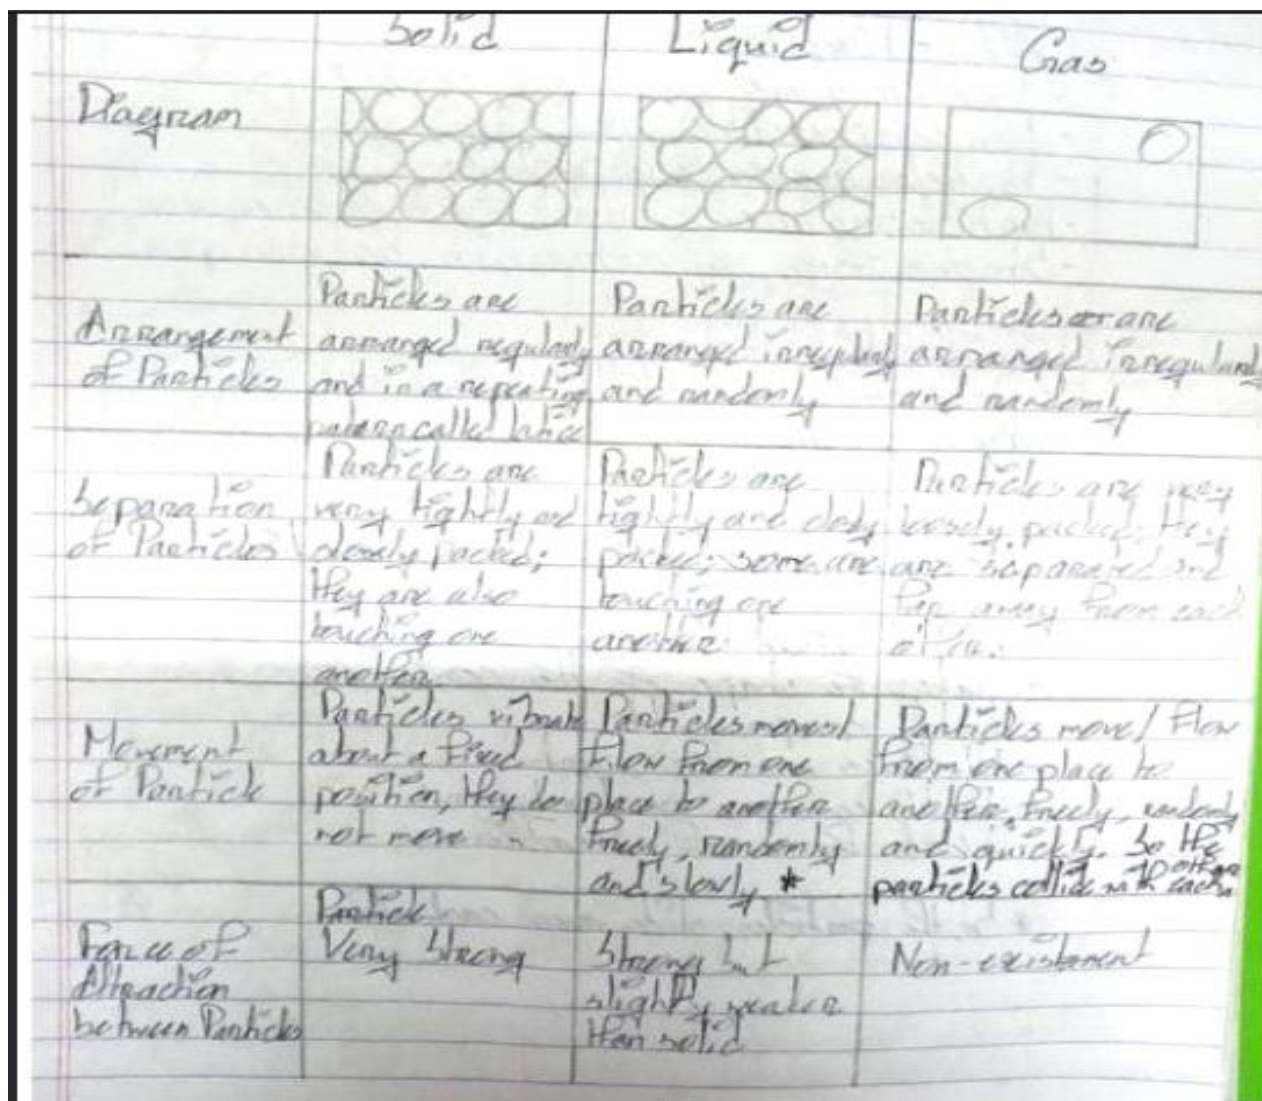 Solid Liquid Gas
Diagram
Arrangement
of Particles
Particles are
arranged regularly
and in a repeating
patern called latice
Particles are
arranged irregularly
and randomly
Particles are
arranged irregularly
and randomly
Separation
of Particles
Particles are
very tightly and
closely packed;
they are also
touching one
another.
Particles are
tightly and closly
packed; some are
touching one
another.
Particles are very
loosely packed; they
are separated and
far away from each
other.
Movement
of Particle
Particles vibrate
about a fixed
position, they do
not move
Particles moves/
flow from one
place to another
freely, randomly
and slowly *
Particles move/ flow
from one place to
another freely, randomly
and quickly. So the
particles collide with each other
Force of
Attraction
between Particles
Particle
Very strong
Strong but
slightly weaker
than solid
Non-existament